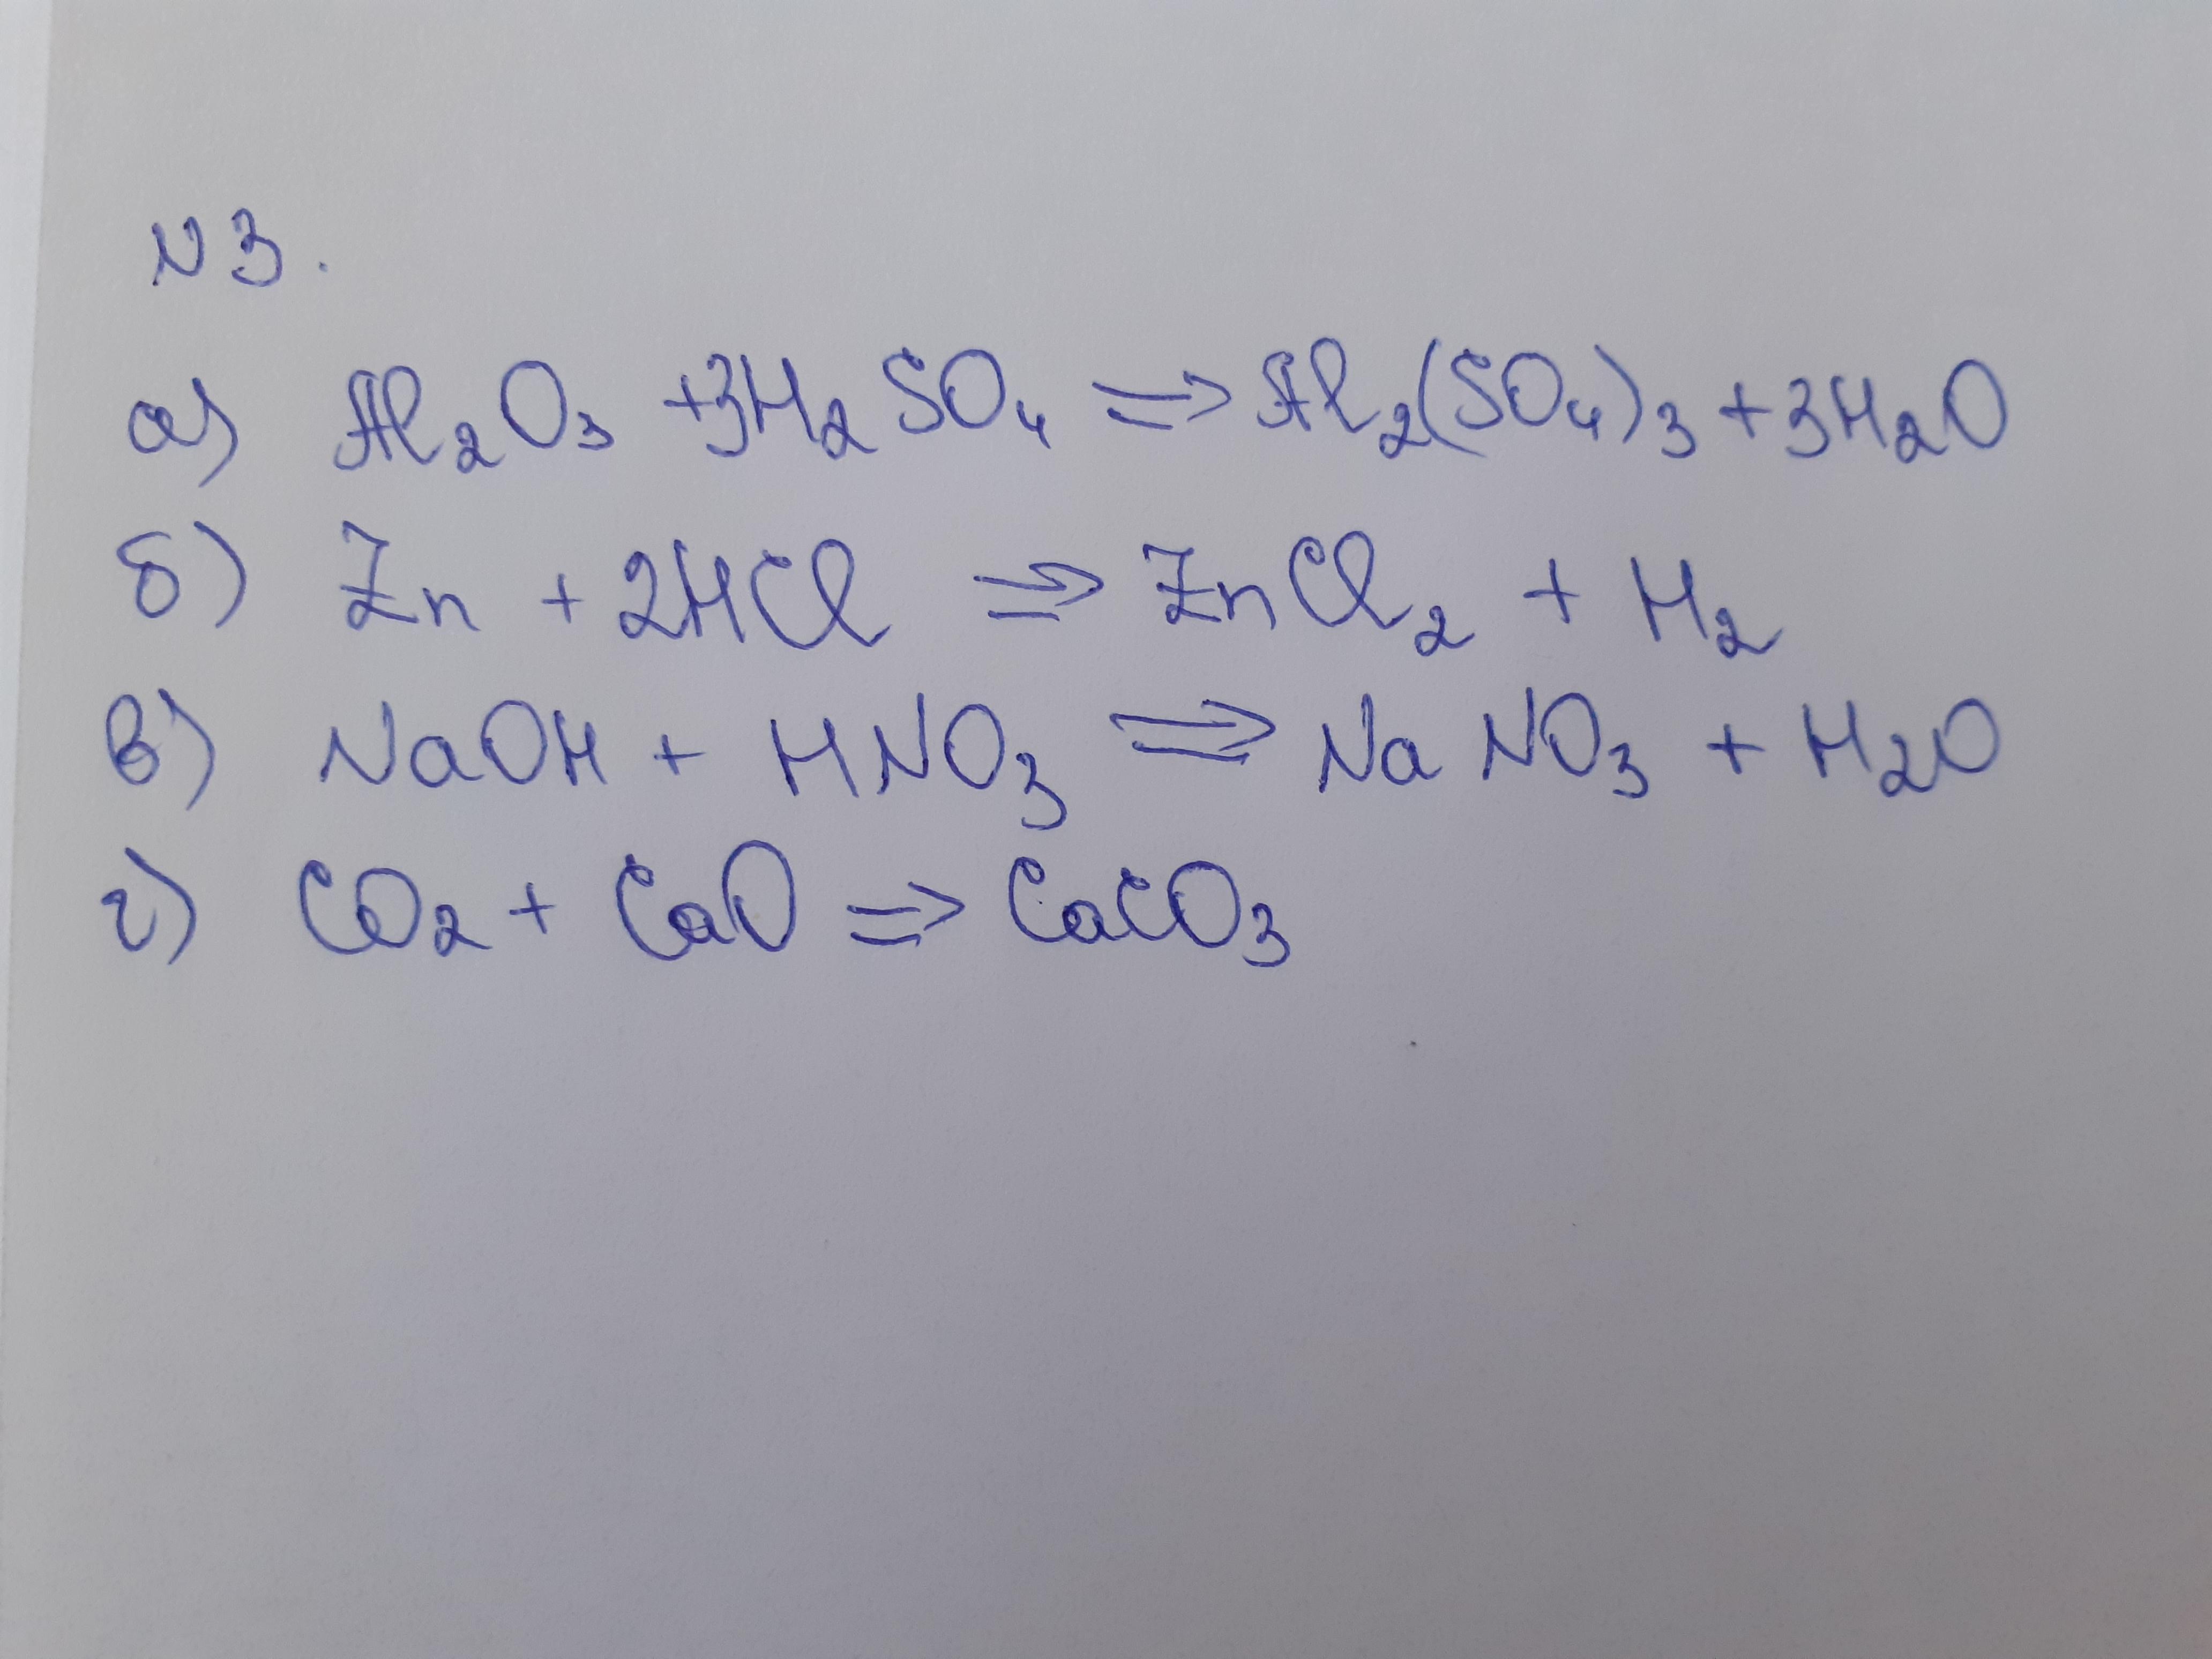 N3.
а) Al₂O₃ +3H₂SO₄ ⇒ Al₂(SO₄)₃ +3H₂O
б) Zn + 2HCl ⇒ ZnCl₂ + H₂
в) NaOH + HNO₃ ⇒ NaNO₃ + H₂O
г) CO₂ + CaO ⇒ CaCO₃